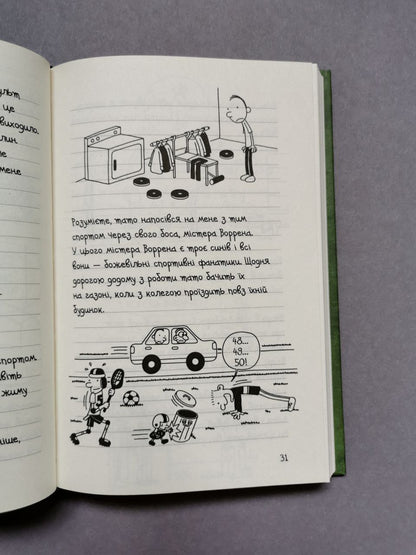 ульт
це
виходило.
лин
мене
спортом
віть
жиму
ніше,
Розумієте, тато напосівся на мене з тим
спортом через свого боса, містера Воррена.
У цього містера Воррена є троє синів і всі
вони — божевільні спортивні фанатики. Щодня
дорогою додому з роботи тато бачить їх
на газоні, коли з колегою проїздить повз їхній
будинок.
48...
49...
50!
31